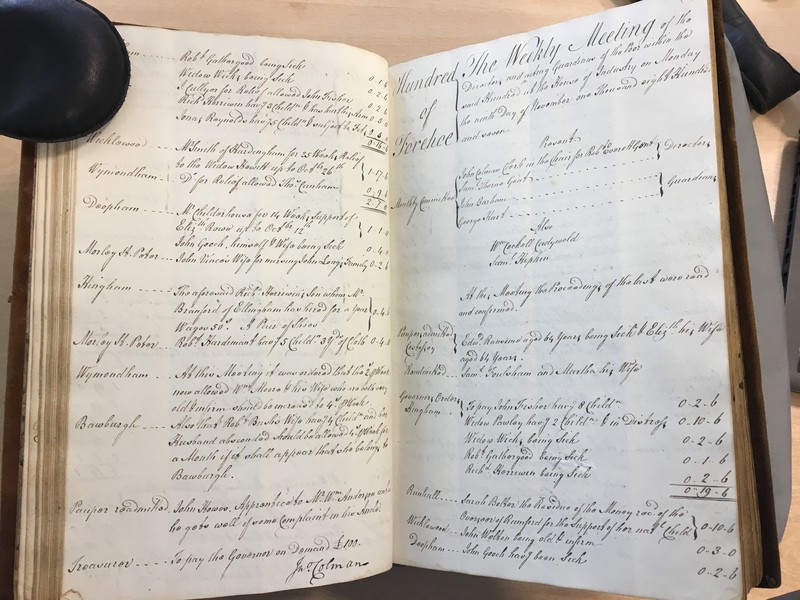 Robt. Gathergood being Sick 0-1-6
Widow Weeks being Sick 0-2-6
J. Cullyer for Relief allowed John Fisher 0-2-6
Richd. Horrewen havg 3 Childn.
Jona. Reynolds havg 5 Childn.
0-16-6
Wicklewood Mr. Smith of Hardingham for 25 Weeks Relief
to the Widow Howett up to Octr. 26th 1-17-6
Wymondham Do. for Relief allowed Thos. Canham 0-9-
2-7-6
Deopham Mr. Childerhouse for 14 Weeks Support of
Elizth. Rowe up to Octr. 12th 1-1-0
John Gooch, himself & Wife being Sick 0-4-0
Morley St. Peter John Vince's Wife for nursing John Long's Family 0-2-6
Hingham The aforesaid Richd. Horrewen's Son whom Mr.
Branford of Ellingham has hired for a year
Wages 50s. A Pair of Shoes
Morley St. Peter Robt. Hardiment havg 5 Childn. 3 yds. of Cloth 0-4-
Wymondham At this Meeting it was ordered that the
now allowed Wm. Moore & his Wife who are both very
old & infirm should be increased to 4s. pr. Week
Bawburgh Also that Robt. Bush's Wife havg 4 Childn. and her
Husband absconded should be allowed 4s. pr. Week for
a Month if it shall appear that she belongs to
Bawburgh.
Pauper readmitted John Howes, Apprentice to Mr. Wm. Anderson until
he gets well of some Complaint in his Ancle
Treasurer To pay the Governor on Demand £100.
Jno. Colman
Hundred of Forehoe
The Weekly Meeting of the
Directors and acting Guardians of the Poor within the
said Hundred at the House of Industry on Monday
the ninth Day of November one Thousand eight Hundred
and seven
Present
Monthly Committee
John Colman Clerk in the Chair for Robt.
Saml. Thorne Gent.
Directors
John Barham
George Hart
Guardians
Also
Wm. Cockell
Saml. Hipkin
At this Meeting the Proceedings of the last were read
and confirmed.
Paupers admitted
Costessey Edwd. Ransome aged 64 Years being Sick & Elizth. his Wife
aged 64 Years.
Readmitted Saml. Foulsham and Martha his Wife
Governor Orders
Hingham To pay John Fisher havg 8 Childn. 0-2-6
Widow Pawley havg 2 Childn. & in Distress 0-10-6
Widow Weeks being Sick 0-2-6
Robt. Gathergood being Sick 0-1-6
Richd. Horrewen being Sick 0-2-6
0-19-6
Runhall Sarah Belter the Residue of the Money recd. of the
Overseer of Rumford for the Support of her natl. Child 0-10-6
Wicklewood John Walker being old & infirm 0-3-0
Deopham John Gooch havg been Sick 0-2-6